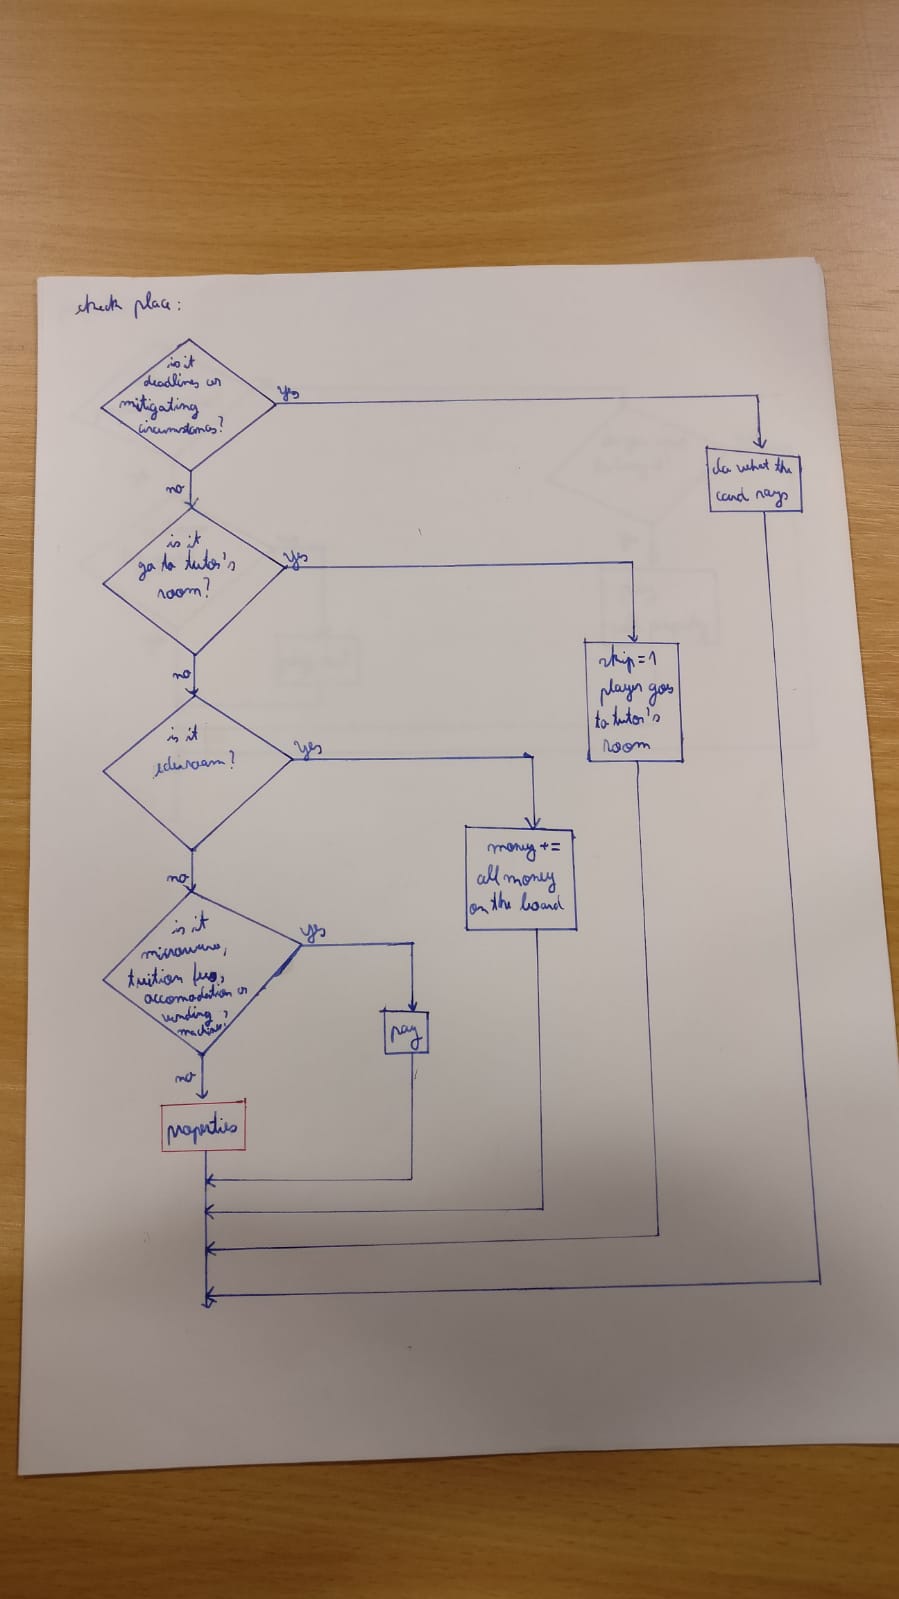 check place:
is it
deadlines or
mitigating
circumstances?
yes
do what the
card says
no
is it
go to tutor's
room?
yes
skip=1
player goes
to tutor's
room
no
is it
yes
money +=
all money
on the board
no
is it
microwave,
tuition fees,
accomodation or
vending
machine?
yes
pay
no
properties